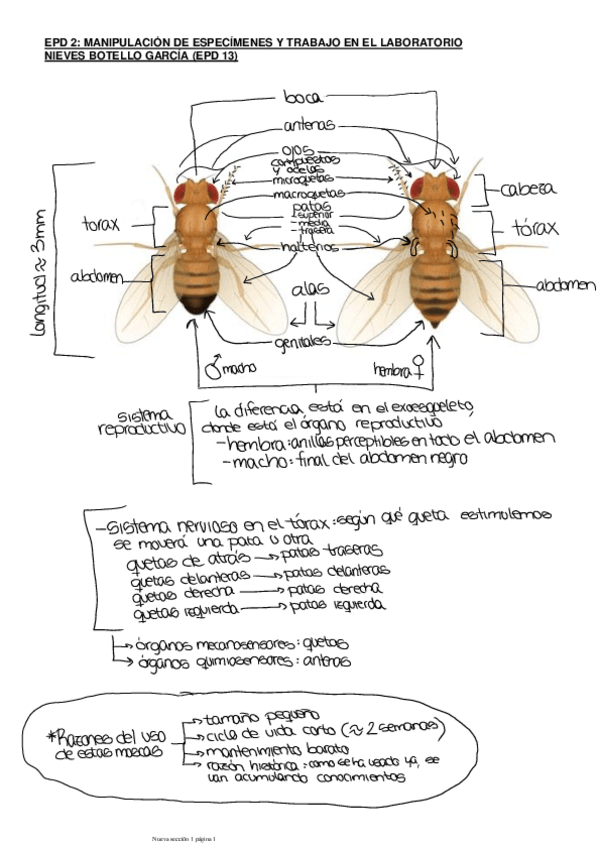 EPD 2: MANIPULACIÓN DE ESPECÍMENES Y TRABAJO EN EL LABORATORIO
NIEVES BOTELLO GARCÍA (EPD 13)
boca
antenas
ojos
compuestos
y ocelos
microquetas
macroquetas
patas
- superior
- media
- trasera
halterios
alas
genitales
cabeza
tórax
abdomen
torax
abdomen
longitud ≈ 3mm
♂ macho
hembra ♀
sistema
reproductivo
la diferencia está en el exoesqueleto,
donde está el órgano reproductivo
- hembra: anillas perceptibles en todo el abdomen
- macho: final del abdomen negro
- Sistema nervioso en el tórax: según qué queta estimulemos
se moverá una pata u otra
quetas de atrás → patas traseras
quetas delanteras → patas delanteras
quetas derecha → patas derecha
quetas izquierda → patas izquierda
→ órganos mecanosensores: quetas
→ órganos quimiosensores: anteras
*Razones del uso
de estas moscas
→ tamaño pequeño
→ ciclo de vida corto (≈ 2 semanas)
→ mantenimiento barato
→ razón histórica: como se ha usado ya, se
van acumulando conocimientos
Nueva sección 1 página 1